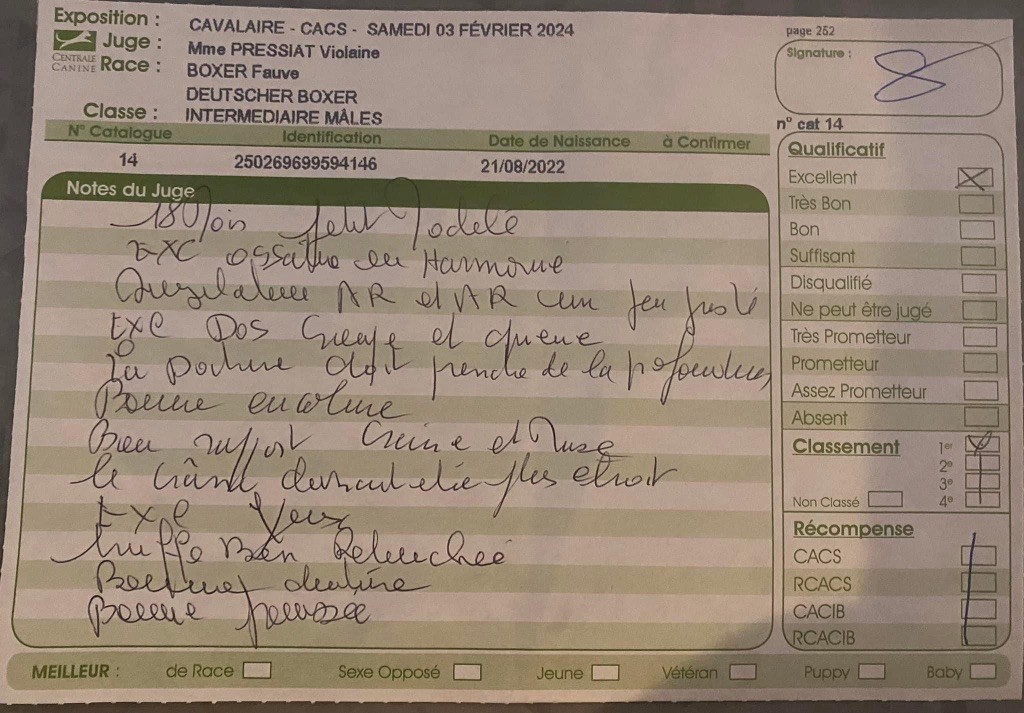 Exposition : CAVALAIRE - CACS - SAMEDI 03 FÉVRIER 2024
Juge : Mme PRESSIAT Violaine
CENTRALE CANINE
Race : BOXER Fauve
DEUTSCHER BOXER
Classe : INTERMEDIAIRE MÂLES
page 252
Signature :
n° cat 14
N° Catalogue Identification Date de Naissance à Confirmer
14 250269699594146 21/08/2022
Notes du Juge
18 Mois petit Modèle
Exc ossature en Harmonie
Angulation AR et AR un peu juste
Exc Dos Croupe et queue
la Poitrine doit prendre de la profondeur
Bonne encolure
Bon rapport Crâne et Muse
le Crâne devrait être plus etroit
Exc Yeux
truffe Bien Retroussée
Bonne denture
Bonne
Qualificatif
Excellent
Très Bon
Bon
Suffisant
Disqualifié
Ne peut être jugé
Très Prometteur
Prometteur
Assez Prometteur
Absent
Classement 1er
2e
3e
Non Classé 4e
Récompense
CACS
RCACS
CACIB
RCACIB
MEILLEUR : de Race Sexe Opposé Jeune Vétéran Puppy Baby